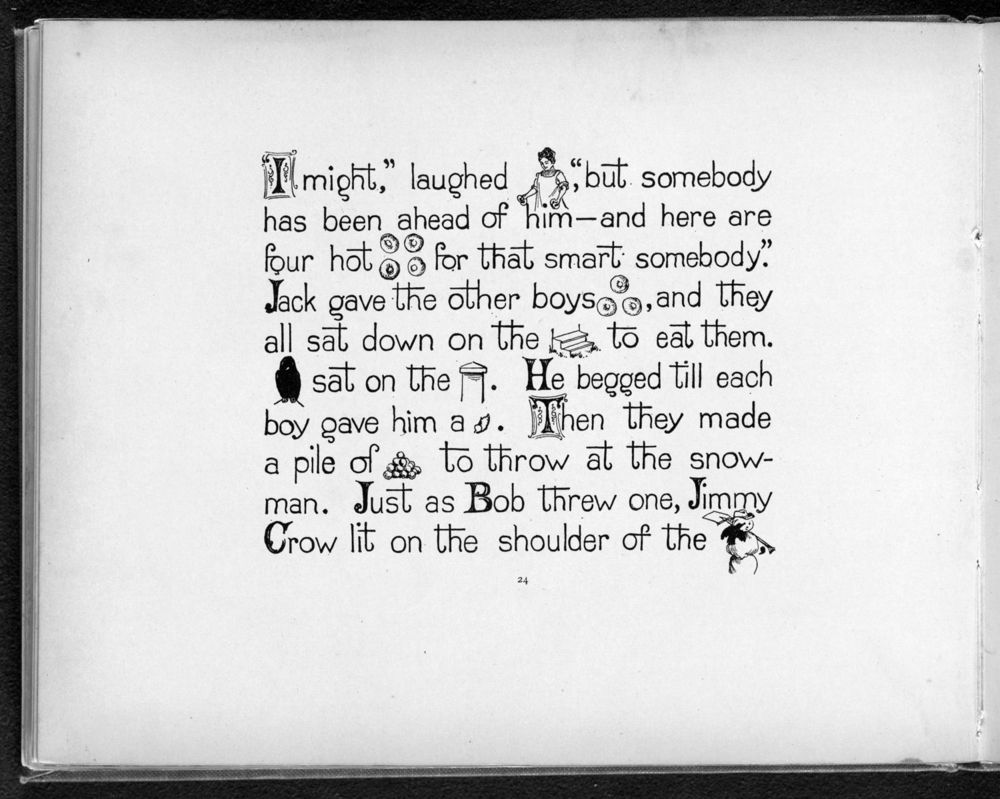 "I might," laughed , "but somebody
has been ahead of him—and here are
four hot for that smart somebody."
Jack gave the other boys , and they
all sat down on the to eat them.
sat on the . He begged till each
boy gave him a . Then they made
a pile of to throw at the snow-
man. Just as Bob threw one, Jimmy
Crow lit on the shoulder of the
24